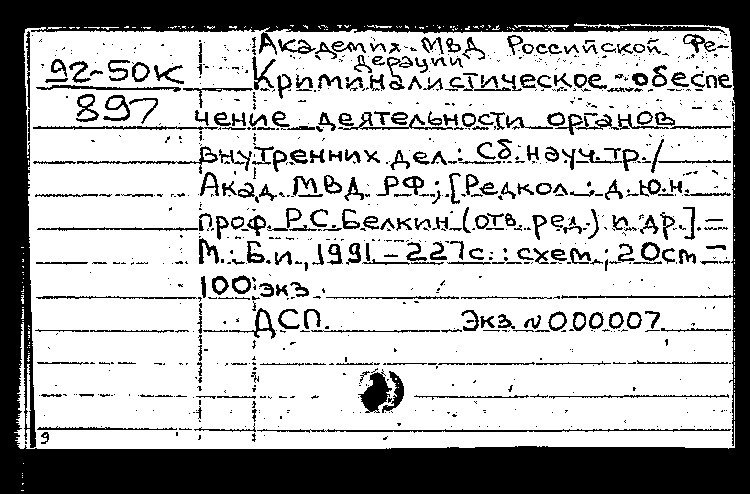 Академия МВД Российской Фе-
дерации
92-50к
897
Криминалистическое обеспе
чение деятельности органов
внутренних дел : Сб. науч. тр. /
Акад. МВД РФ ; [Редкол. : д. ю. н.
проф. Р. С. Белкин (отв. ред.) и др.] -
М. : Б. и., 1991. - 227 с. : схем ; 20 см -
100 экз.
ДСП. Экз. N 000007
9